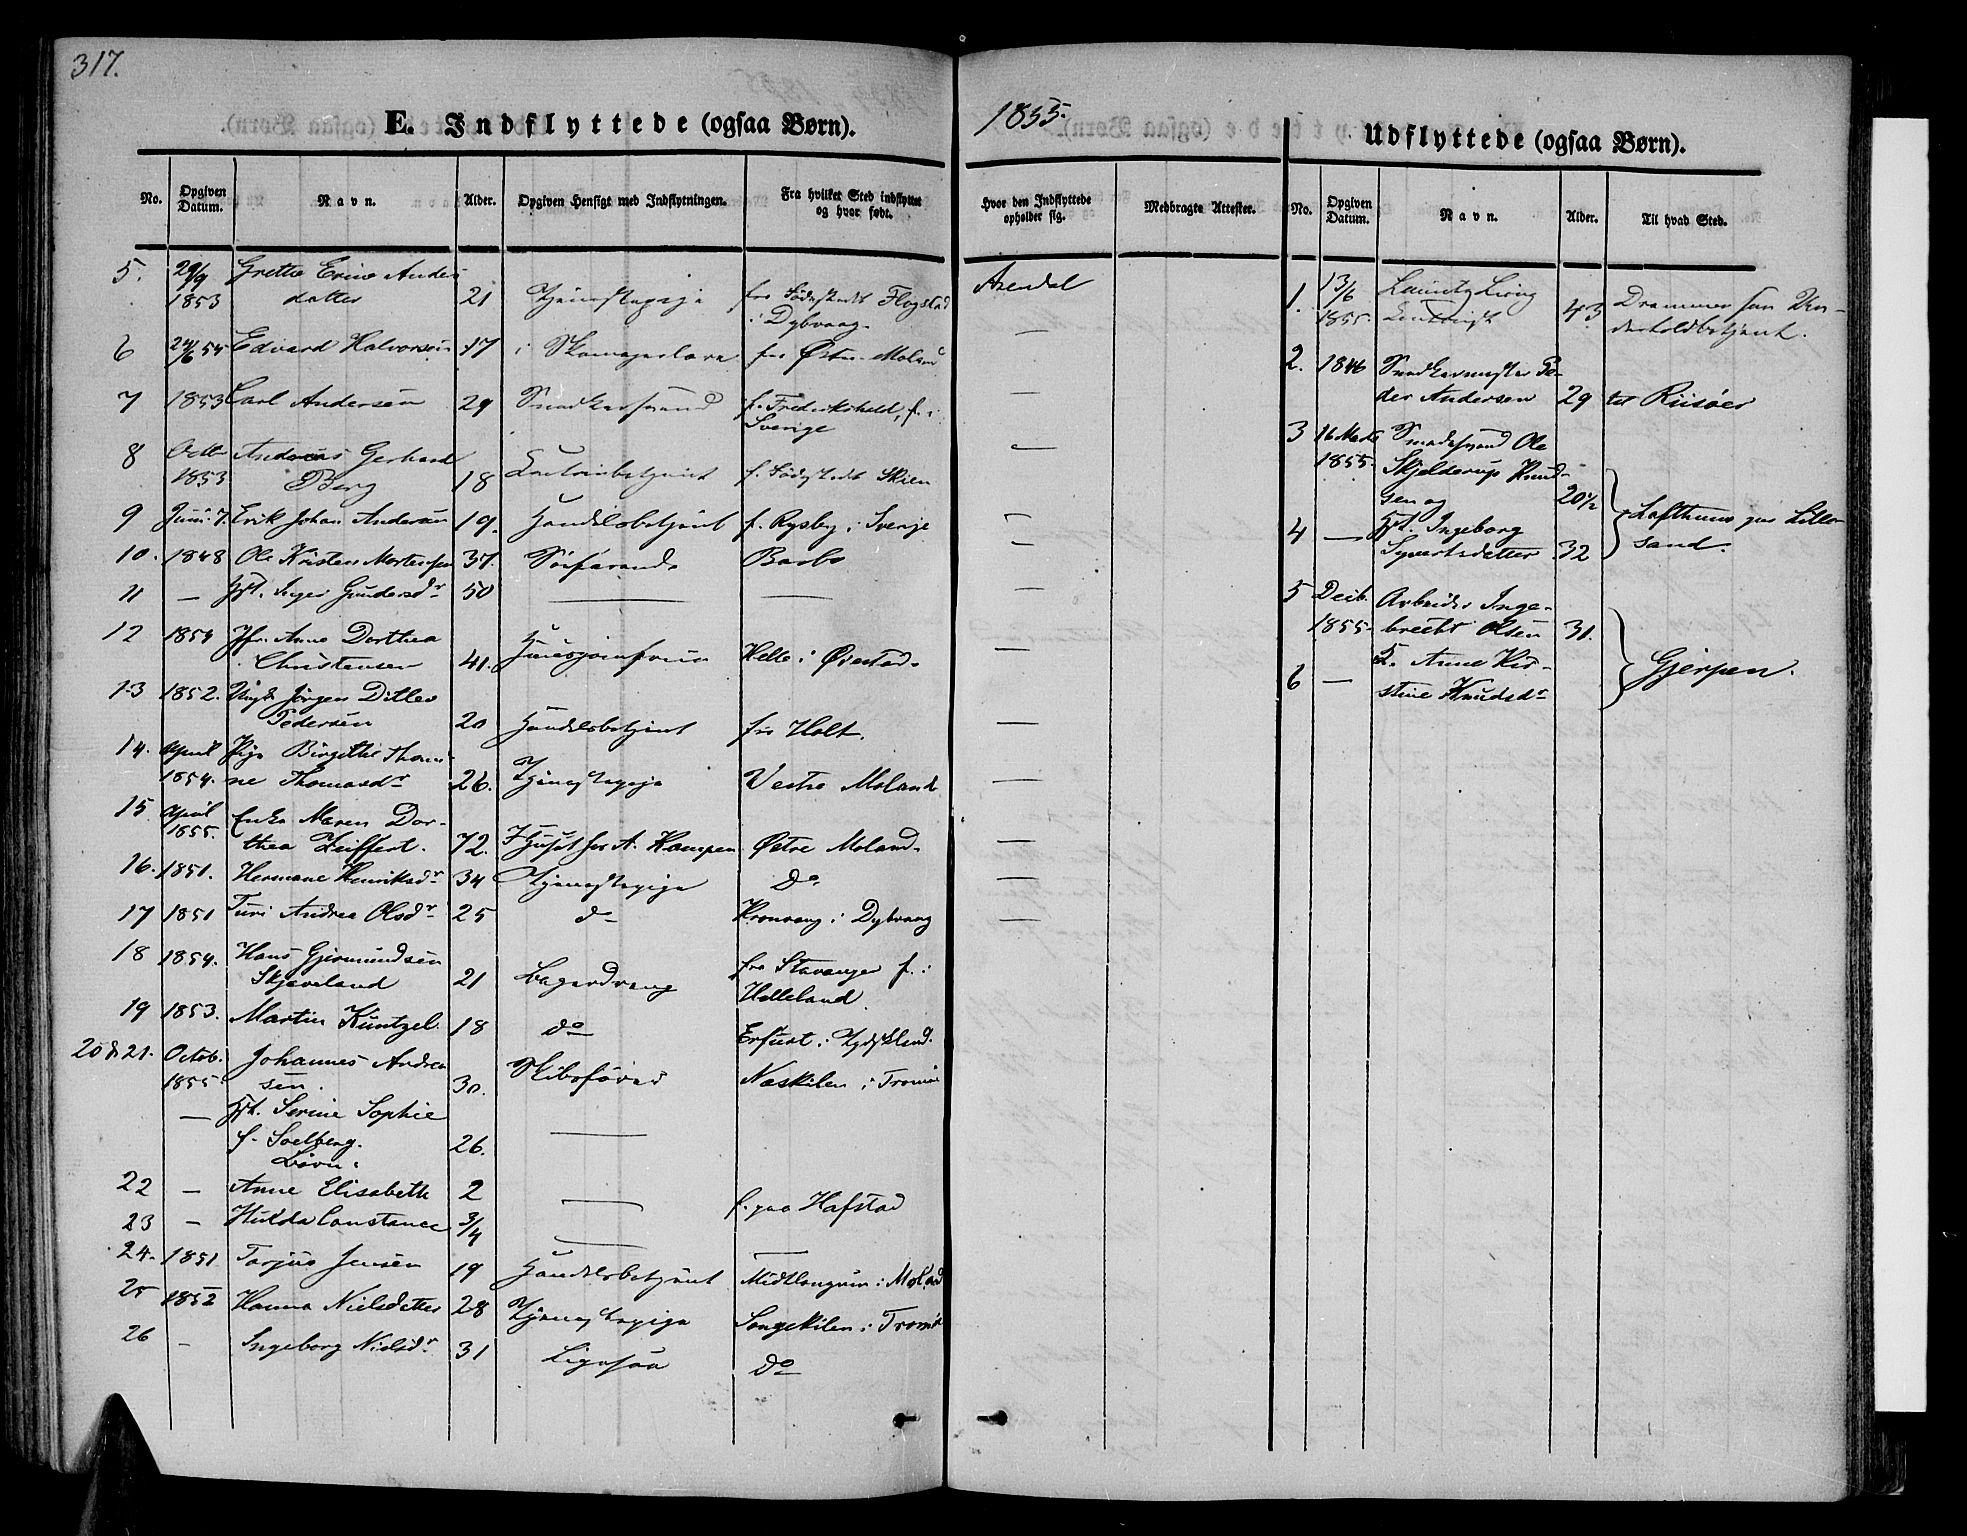 317.
1855.
E. Indflyttede (ogsaa Børn).
No. Opgiven Datum. Navn. Alder. Opgiven Hensigt med Indflytningen. Fra hvilket Sted indflyttet og hvor født. Hvor den Indflyttede opholder sig. Medbragte Attester.
5. 29/9 Grethe Erine Anders
1853 datter 21 Tjenestepige fra Fødestedet Flogstad Arendal
i Dybvaag.
6 24/6 54 Edvard Halvorsen 17 i Skomagerlære fra Østre Moland —
7 1853 Carl Andersen 29 Snedkersvend f. Frederikshald, f. i —
Sverige
8 Octbr Andreas Gerhard —
1853 Berg 18 Contoirbetjent f. Fødestedet Skien
9 Juni 7. Erik Johan Andersen 19. Handelsbetjent f. Rysby i Sverje —
10. 1848 Ole Kristen Mortensen 37. Søfarende Barbo —
11 — Hst. Inger Gundersdr 50 — — —
12 1854 Jfr. Anne Dorthea
Christensen 41. Huusjomfru Helle i Øiestad. —
13 1852. Ungk. Jørgen Ditlev
Pedersen 20 Handelsbetjent fra Holt. —
14. April Pige Birgitte Thom
1854. ne Thomasdr 26. Tjenestepige Vestre Moland —
15 April Enke Maren Dor-
1855. thea Zeiffert. 72. I Huset hos A. Kampen Østre Moland. —
16. 1851. Hermane Henriksdr 34 Tjenestepige Do —
17 1851 Turi Andrea Olsdr 25 do Kronvaag i Dybvaag —
18 1854. Hans Gjermundsen fra Stavanger f. i
Skjæveland 21 Bagerdreng Helleland
19 1853. Martin Küntzel 18 do Erfurt i Tydskland.
20 & 21. Octob. Johannes Andrea
1855 sen. 30. Skibsfører Naskilen i Tromø
— Hst. Serine Sophie
f. Soelberg. 26. —
Børn:
22 — Anne Elisabeth 2 — f. paa Hafstad
23 — Hulda Constance 3/4 —
24. 1851 Torjus Jensen 19 Handelsbetjent Midtlangum i Moland
25 1852 Hanna Nielsdatter 28 Tjenestepige Songekilen i Tromø
26 — Ingeborg Nielsdr 31 Ligesaa do
Udflyttede (ogsaa Børn).
No. Opgiven Datum. Navn. Alder. Til hvad Sted.
1. 13/6
1855. 43 Drammen som Un-
derholdbetjent.
2. 1846 Snedkermester Pe-
der Andersen 29 til Riisøer
3 16 Marts Smedesvend Ole
1855. Skjelderup Knud-
sen og 20 1/2
4 — Hst. Ingeborg Lofthuus paa Lille-
Syvertsdatter 32 sand.
5 Decb. Arbeider Inge-
1855 brecht Olsen 31. Gjerpen.
6 — K. Anne Kir-
stine Knudsdr